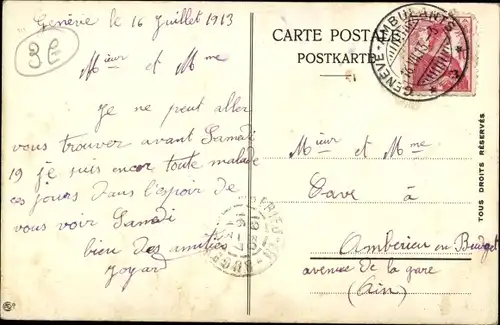 Genève le 16 Juillet 1913
3E
Mieur et Mme
Je ne peut aller
vous trouver avant Samedi
19 je suis encor toute malade
ces jours dans l'espoir de
vous voir Samdi
bien des amitiés
Joyard
CARTE POSTALE
POSTKARTE
GENÈVE-AMBULANT
Mieur et Mme
Dave à
Amberieu en Budget
avenue de la gare
(Ain)
TOUS DROITS RÉSERVÉS